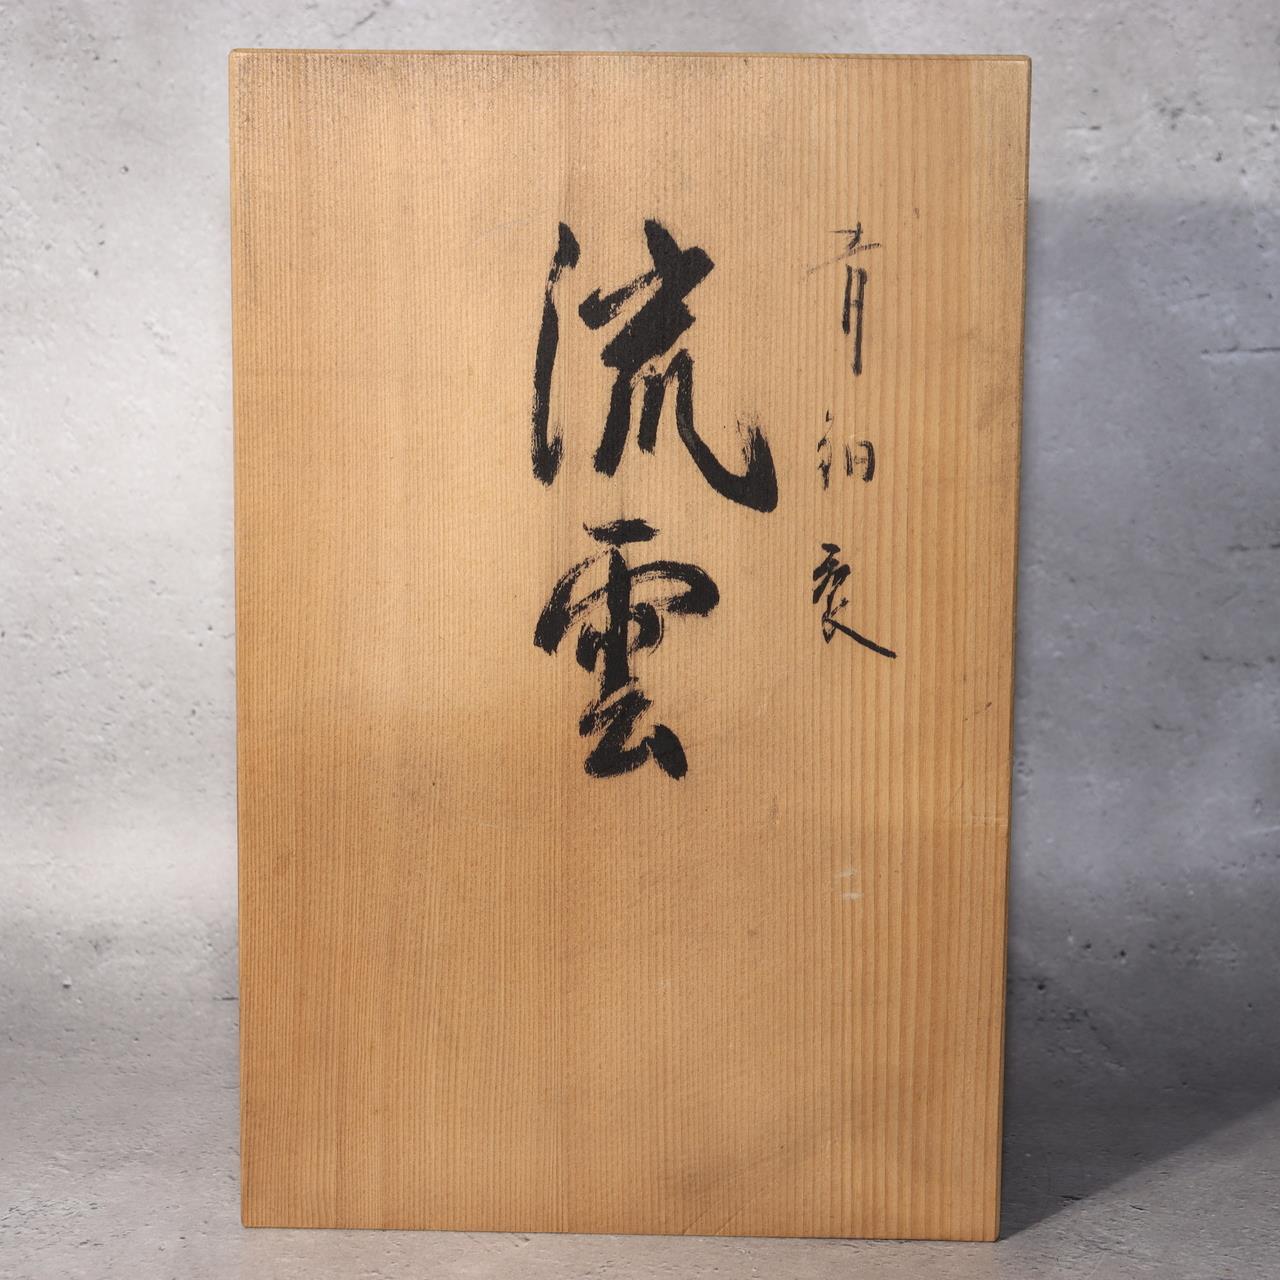 青釉瓷
流雲